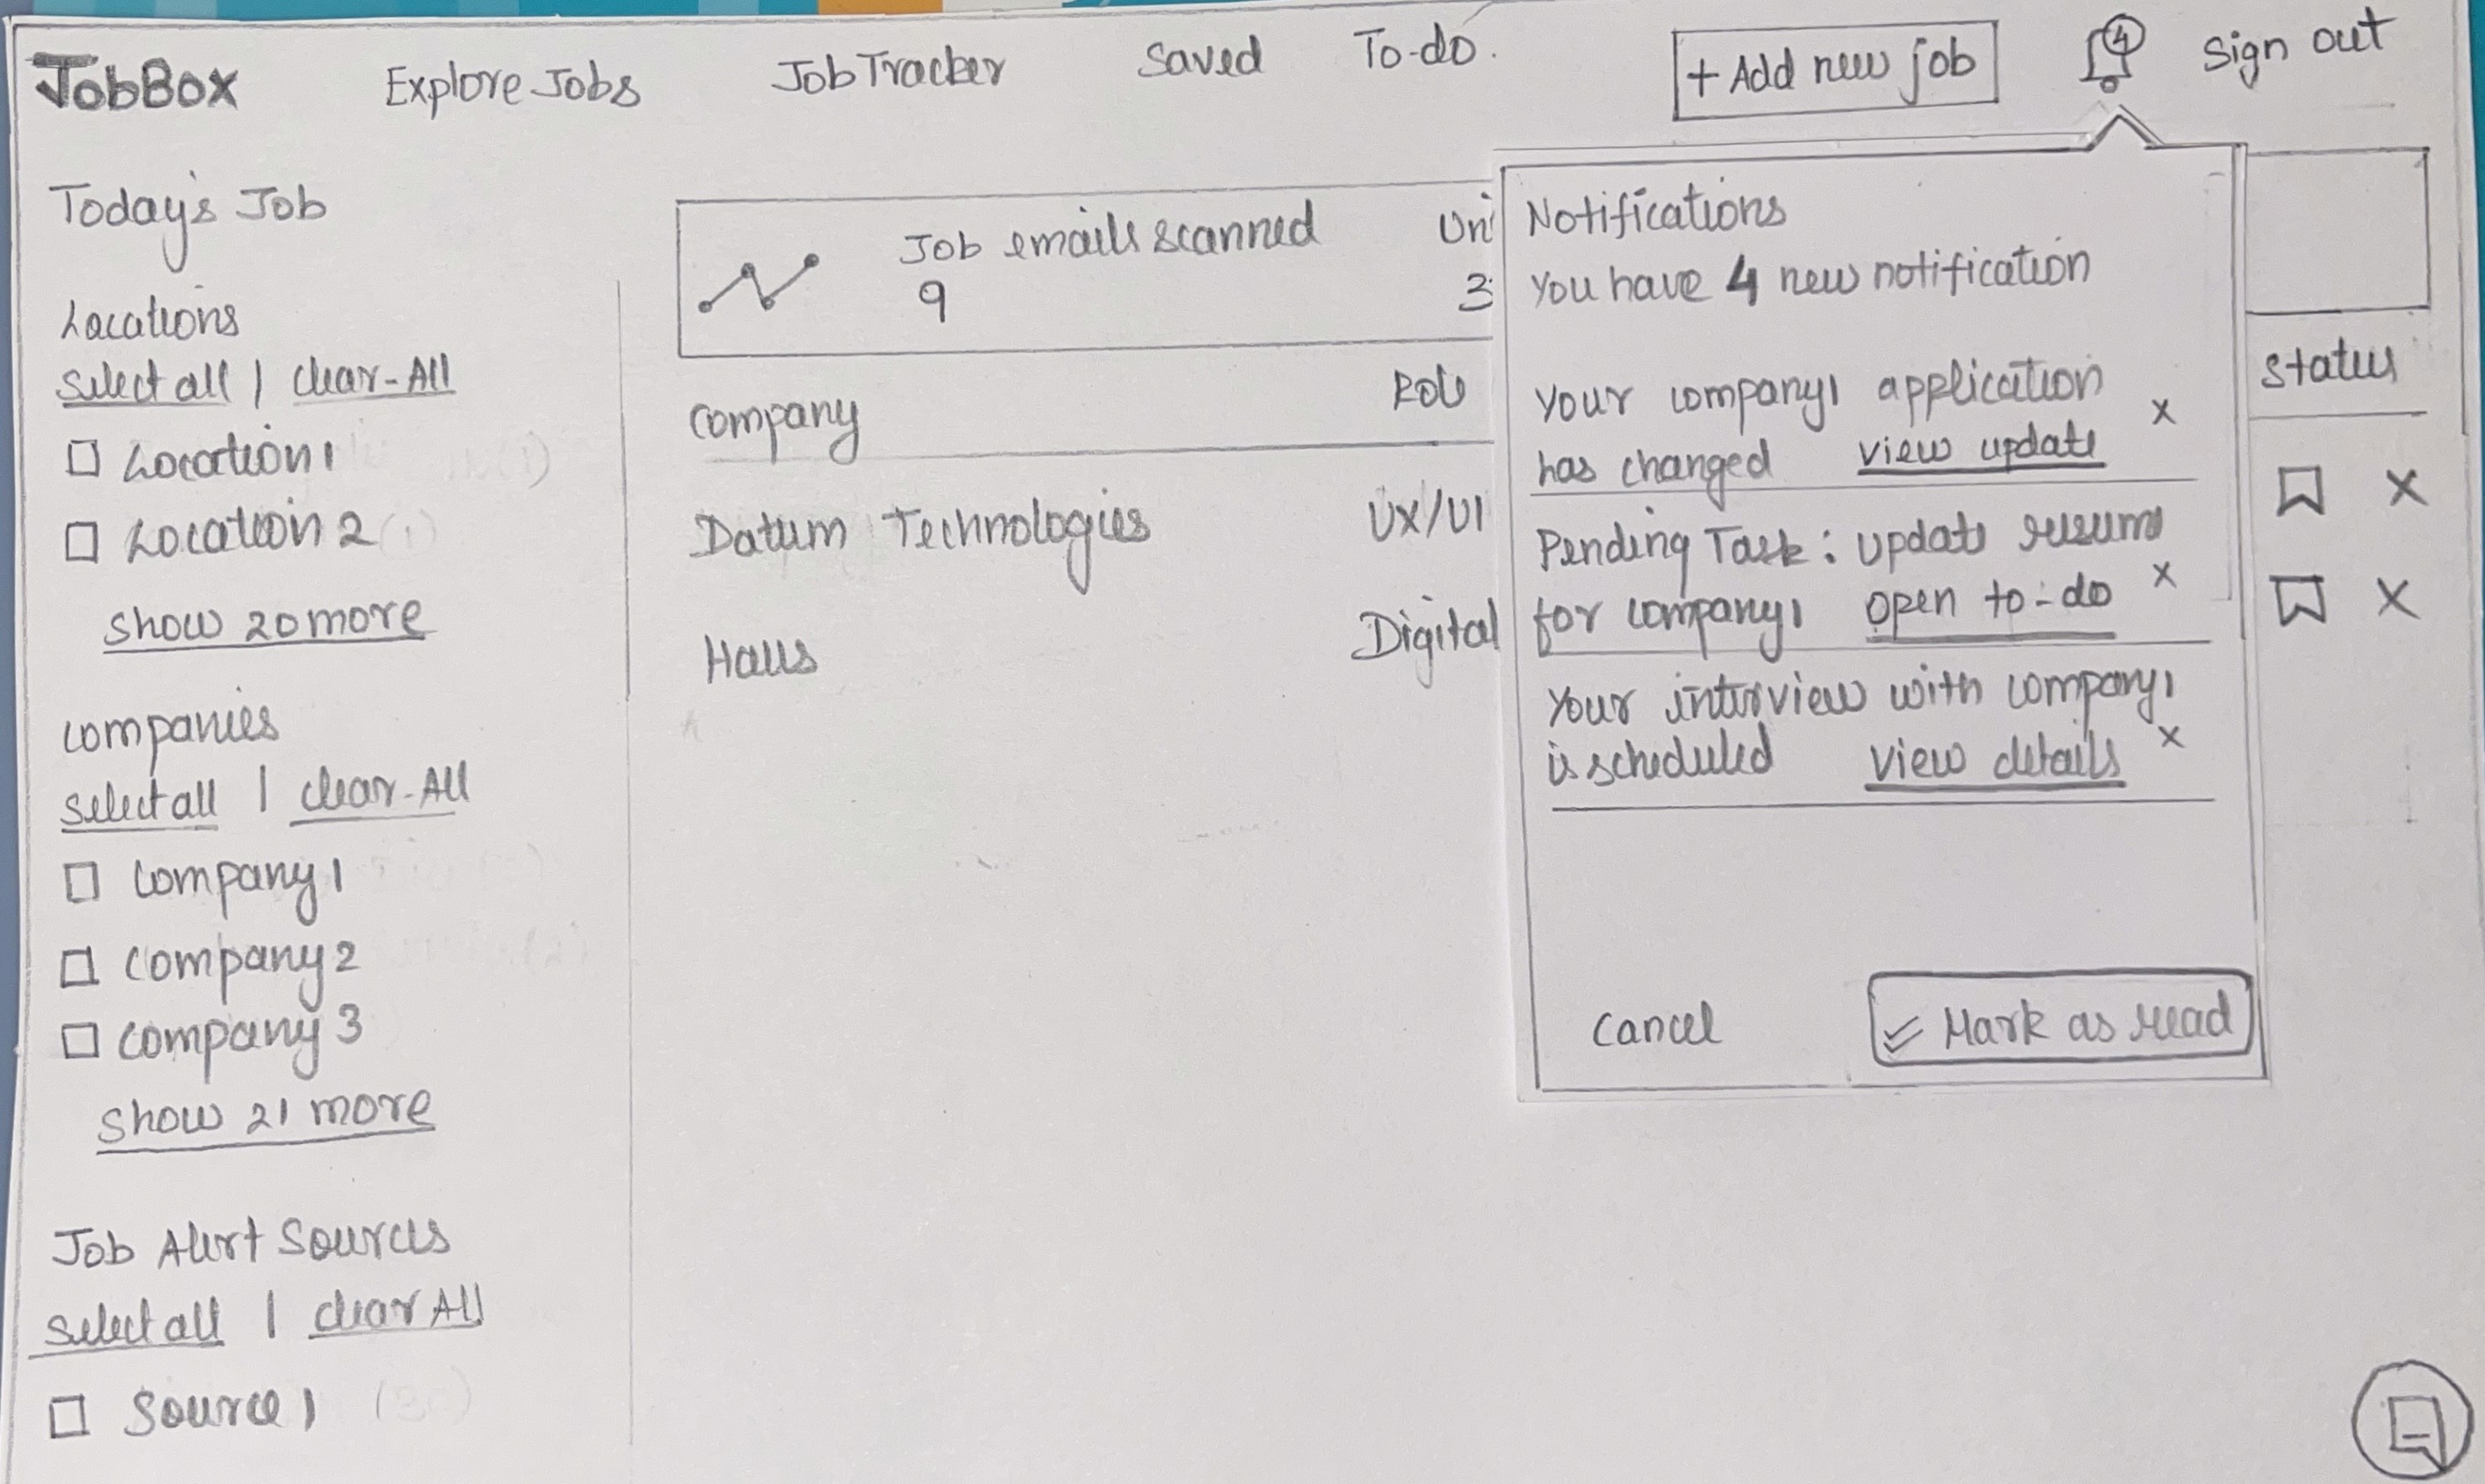 JobBox Explore Jobs Job Tracker Saved To-do. + Add new job 4 Sign out
Today's Job
Locations
Select all | Clear-All
Location 1
Location 2
Show 20 more
Companies
Select all | Clear-All
Company 1
Company 2
Company 3
Show 21 more
Job Alert Sources
Select all | Clear All
Source 1
Job emails scanned Uni
9 3
Company Role Status
Datum Technologies UX/UI
Halls Digital
Notifications
You have 4 new notification
Your company1 application x
has changed view update
Pending Task: update resume
for company1 open to-do x
Your interview with company1
is scheduled view details x
Cancel Mark as read